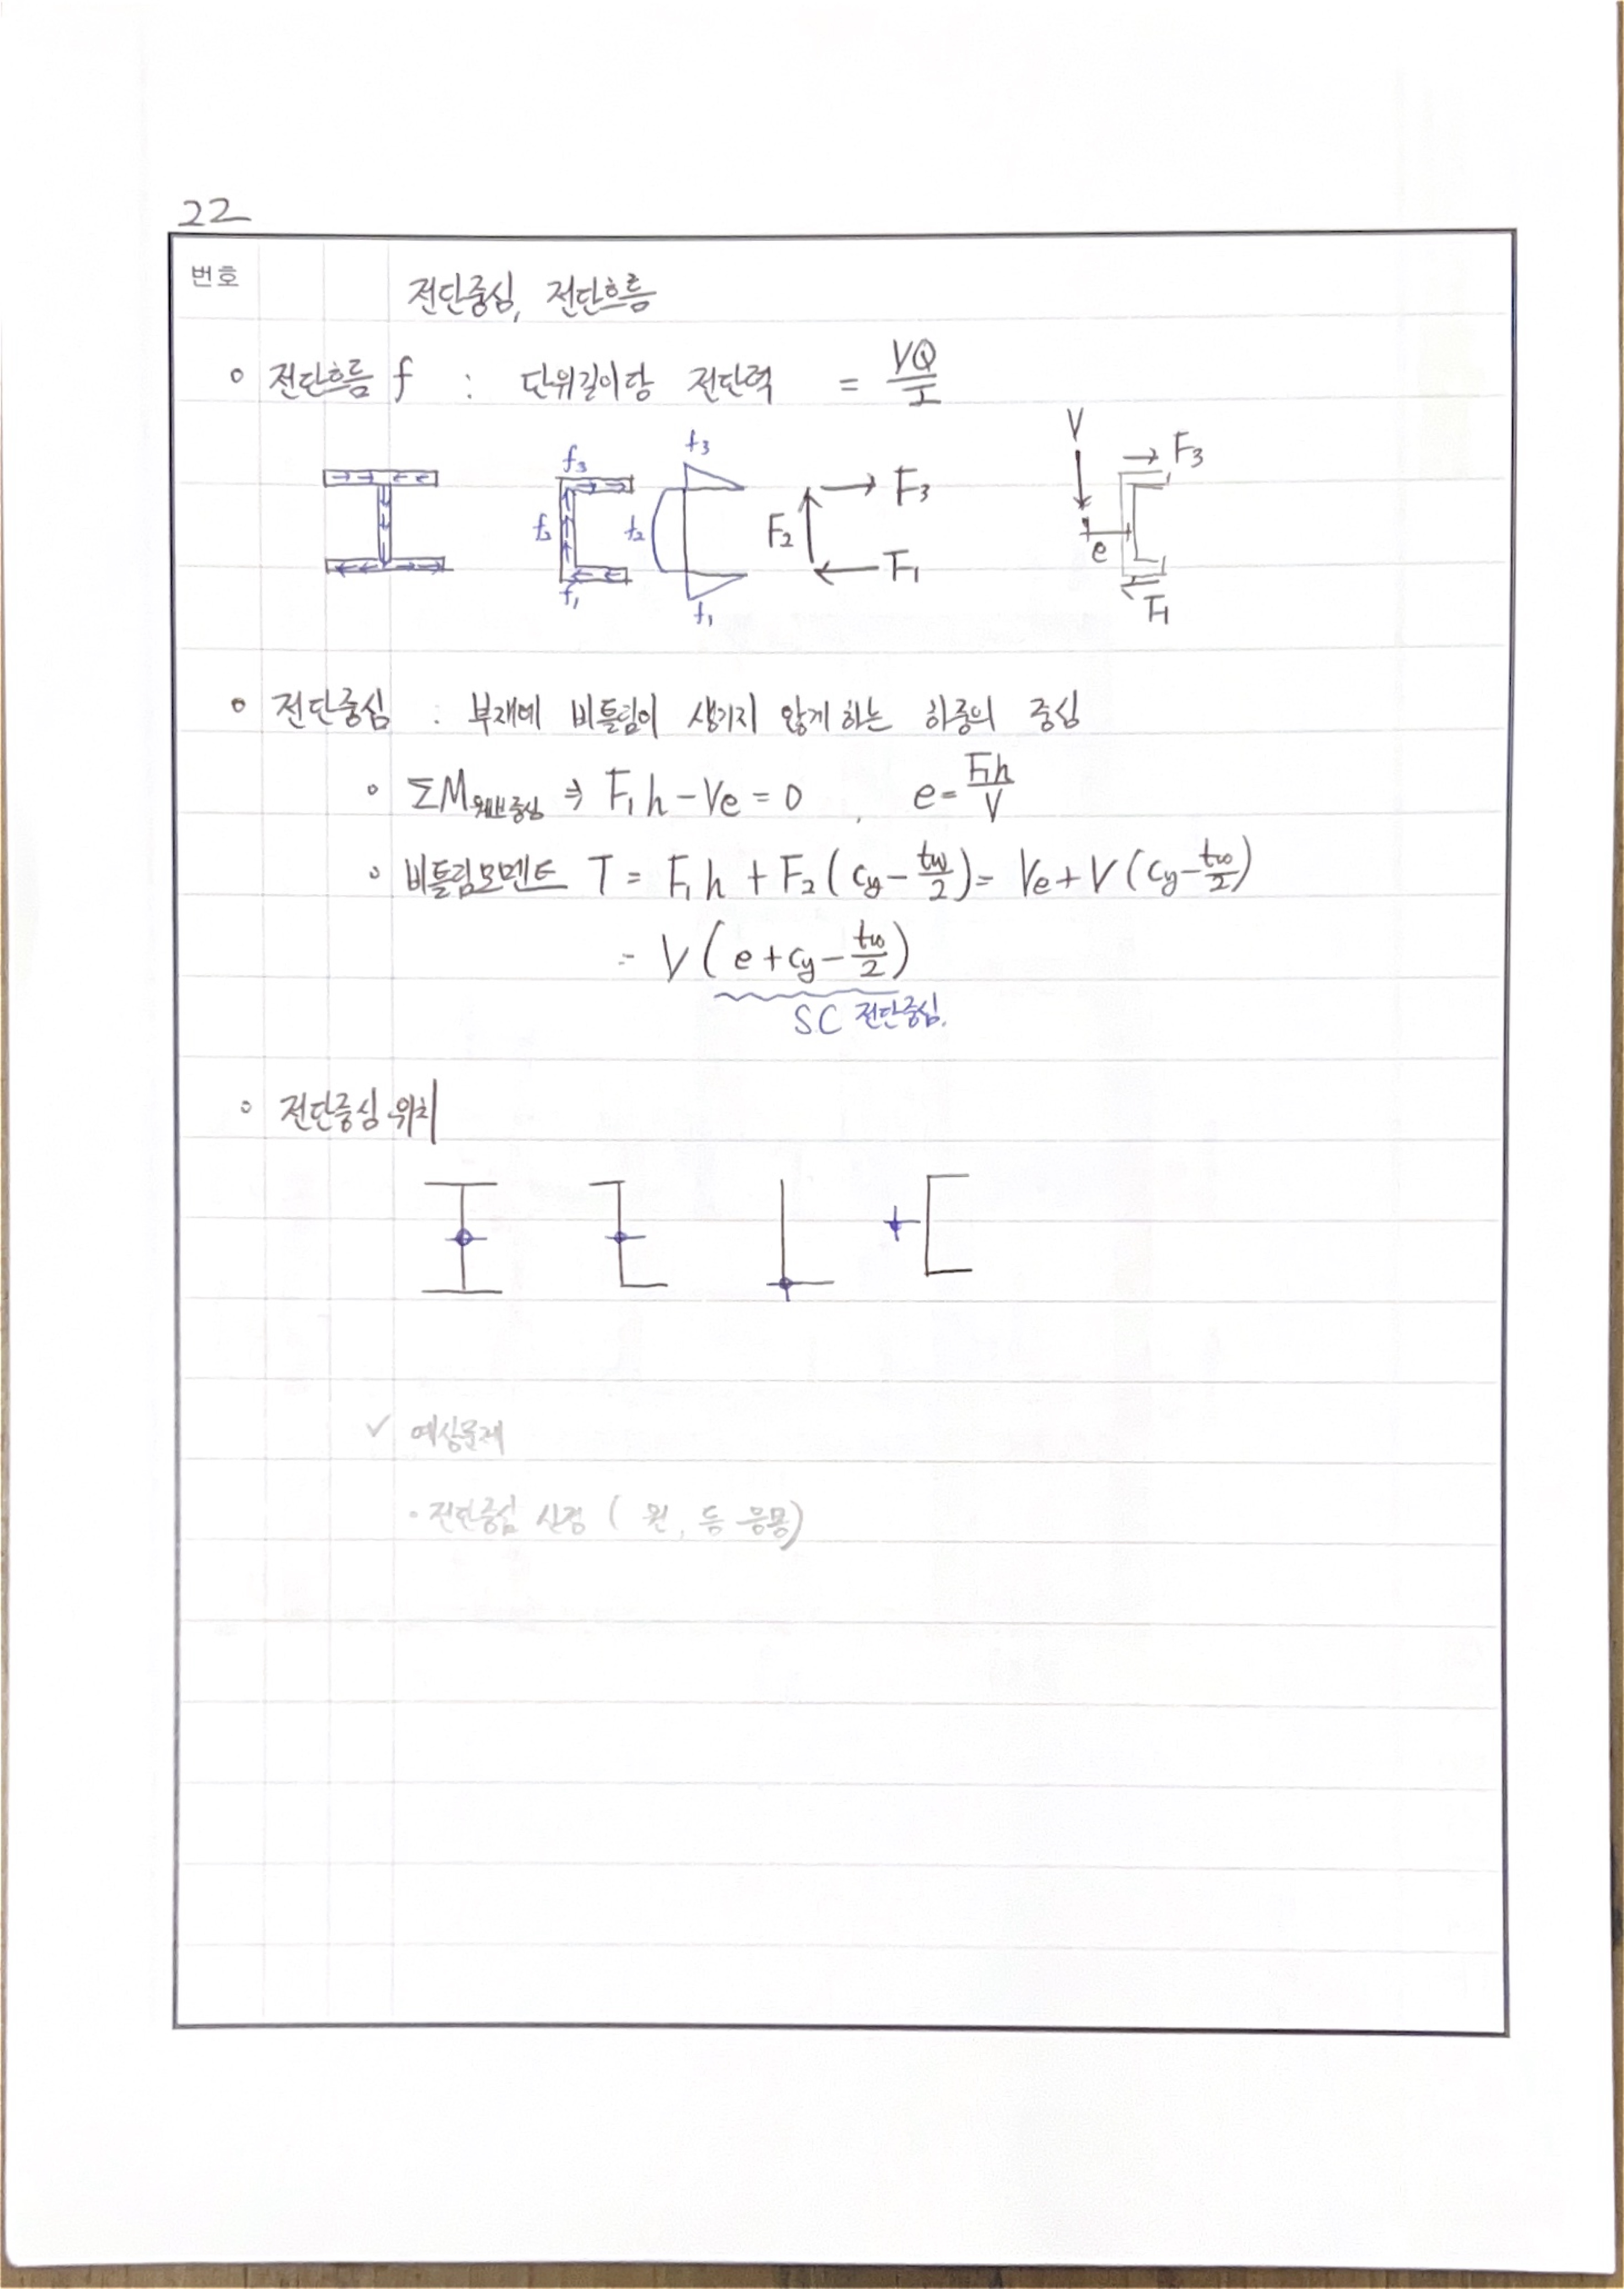 22
번호
전단중심, 전단흐름
◦ 전단흐름 f : 단위길이당 전단력 = VQ/I
f₃ f₂ f₁ f₃ f₂ f₁ F₃ F₂ F₁ V e F₃ F₁
◦ 전단중심 : 부재에 비틀림이 생기지 않게 하는 하중의 중심
◦ ΣM웨브중심 ⇒ F₁h - Ve = 0 , e = F₁h/V
◦ 비틀림모멘트 T = F₁h + F₂(cy - tw/2) = Ve + V(cy - tw/2)
= V(e + cy - tw/2)
SC 전단중심.
◦ 전단중심 위치
✓ 예상문제
• 전단중심 산정 ( 원, 등 응용)